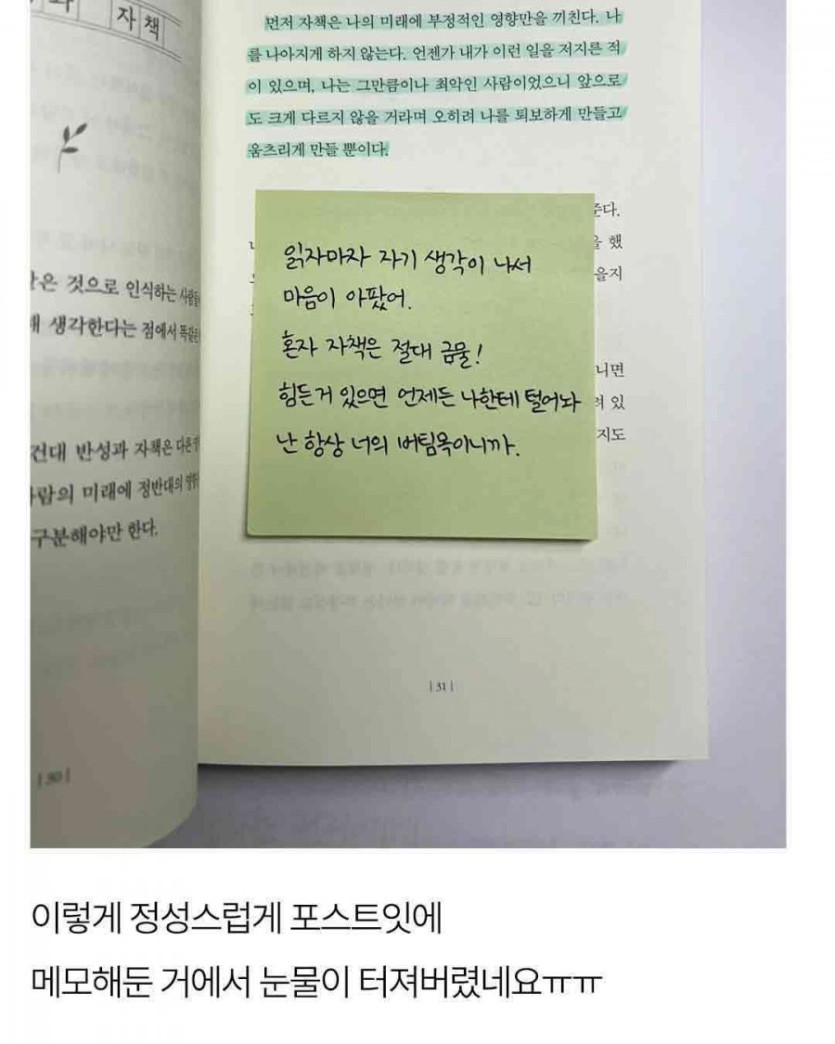 자책
은 것으로 인식하는 사람들
생각한다는 점에서 똑같은
건대 반성과 자책은 다른
람의 미래에 정반대의 영향
구분해야만 한다.
| 30 |
먼저 자책은 나의 미래에 부정적인 영향만을 끼친다. 나
를 나아지게 하지 않는다. 언젠가 내가 이런 일을 저지른 적
이 있으며, 나는 그만큼이나 최악인 사람이었으니 앞으로
도 크게 다르지 않을 거라며 오히려 나를 퇴보하게 만들고
움츠리게 만들 뿐이다.
준다.
을 했
을지
니면
려 있
지도
읽자마자 자기 생각이 나서
마음이 아팠어.
혼자 자책은 절대 금물!
힘든거 있으면 언제든 나한테 털어놔
난 항상 너의 버팀목이니까.
| 31 |
이렇게 정성스럽게 포스트잇에
메모해둔 거에서 눈물이 터져버렸네요ㅠㅠ